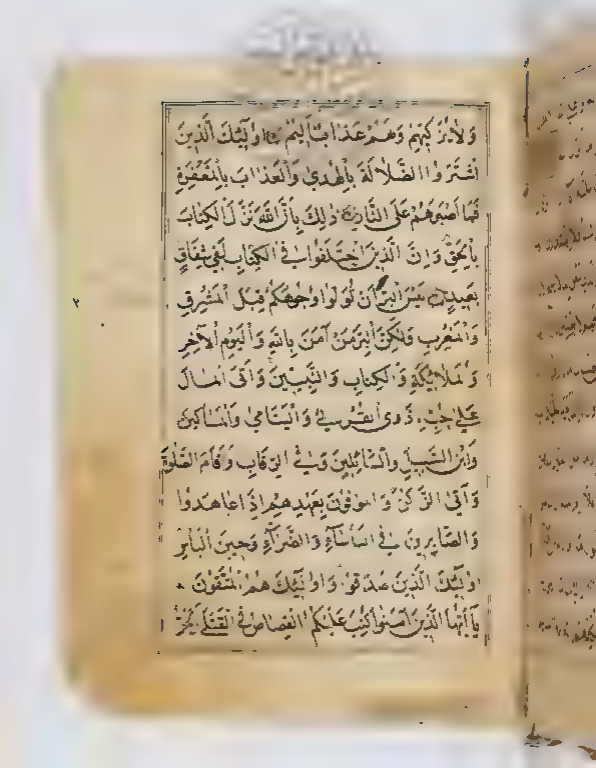 وَلَا يُزَكِّيهِمْ وَلَهُمْ عَذَابٌ أَلِيمٌ اُولَٰئِكَ الَّذِينَ
اشْتَرَوُا الضَّلَالَةَ بِالْهُدَى وَالْعَذَابَ بِالْمَغْفِرَةِ
فَمَا أَصْبَرَهُمْ عَلَى النَّارِ ذَٰلِكَ بِأَنَّ اللَّهَ نَزَّلَ الْكِتَابَ
بِالْحَقِّ وَإِنَّ الَّذِينَ اخْتَلَفُوا فِي الْكِتَابِ لَفِي شِقَاقٍ
بَعِيدٍ لَيْسَ الْبِرَّ أَنْ تُوَلُّوا وُجُوهَكُمْ قِبَلَ الْمَشْرِقِ
وَالْمَغْرِبِ وَلَكِنَّ الْبِرَّ مَنْ آمَنَ بِاللَّهِ وَالْيَوْمِ الْآخِرِ
وَالْمَلَائِكَةِ وَالْكِتَابِ وَالنَّبِيِّينَ وَآتَى الْمَالَ
عَلَى حُبِّهِ ذَوِي الْقُرْبَى وَالْيَتَامَى وَالْمَسَاكِينَ
وَابْنَ السَّبِيلِ وَالسَّائِلِينَ وَفِي الرِّقَابِ وَأَقَامَ الصَّلٰوةَ
وَآتَى الزَّكٰوةَ وَالْمُوفُونَ بِعَهْدِهِمْ إِذَا عَاهَدُوا
وَالصَّابِرِينَ فِي الْبَأْسَاءِ وَالضَّرَّاءِ وَحِينَ الْبَأْسِ
اُولَٰئِكَ الَّذِينَ صَدَقُوا وَاُولَٰئِكَ هُمُ الْمُتَّقُونَ
يَا أَيُّهَا الَّذِينَ آمَنُوا كُتِبَ عَلَيْكُمُ الْقِصَاصُ فِي الْقَتْلَى